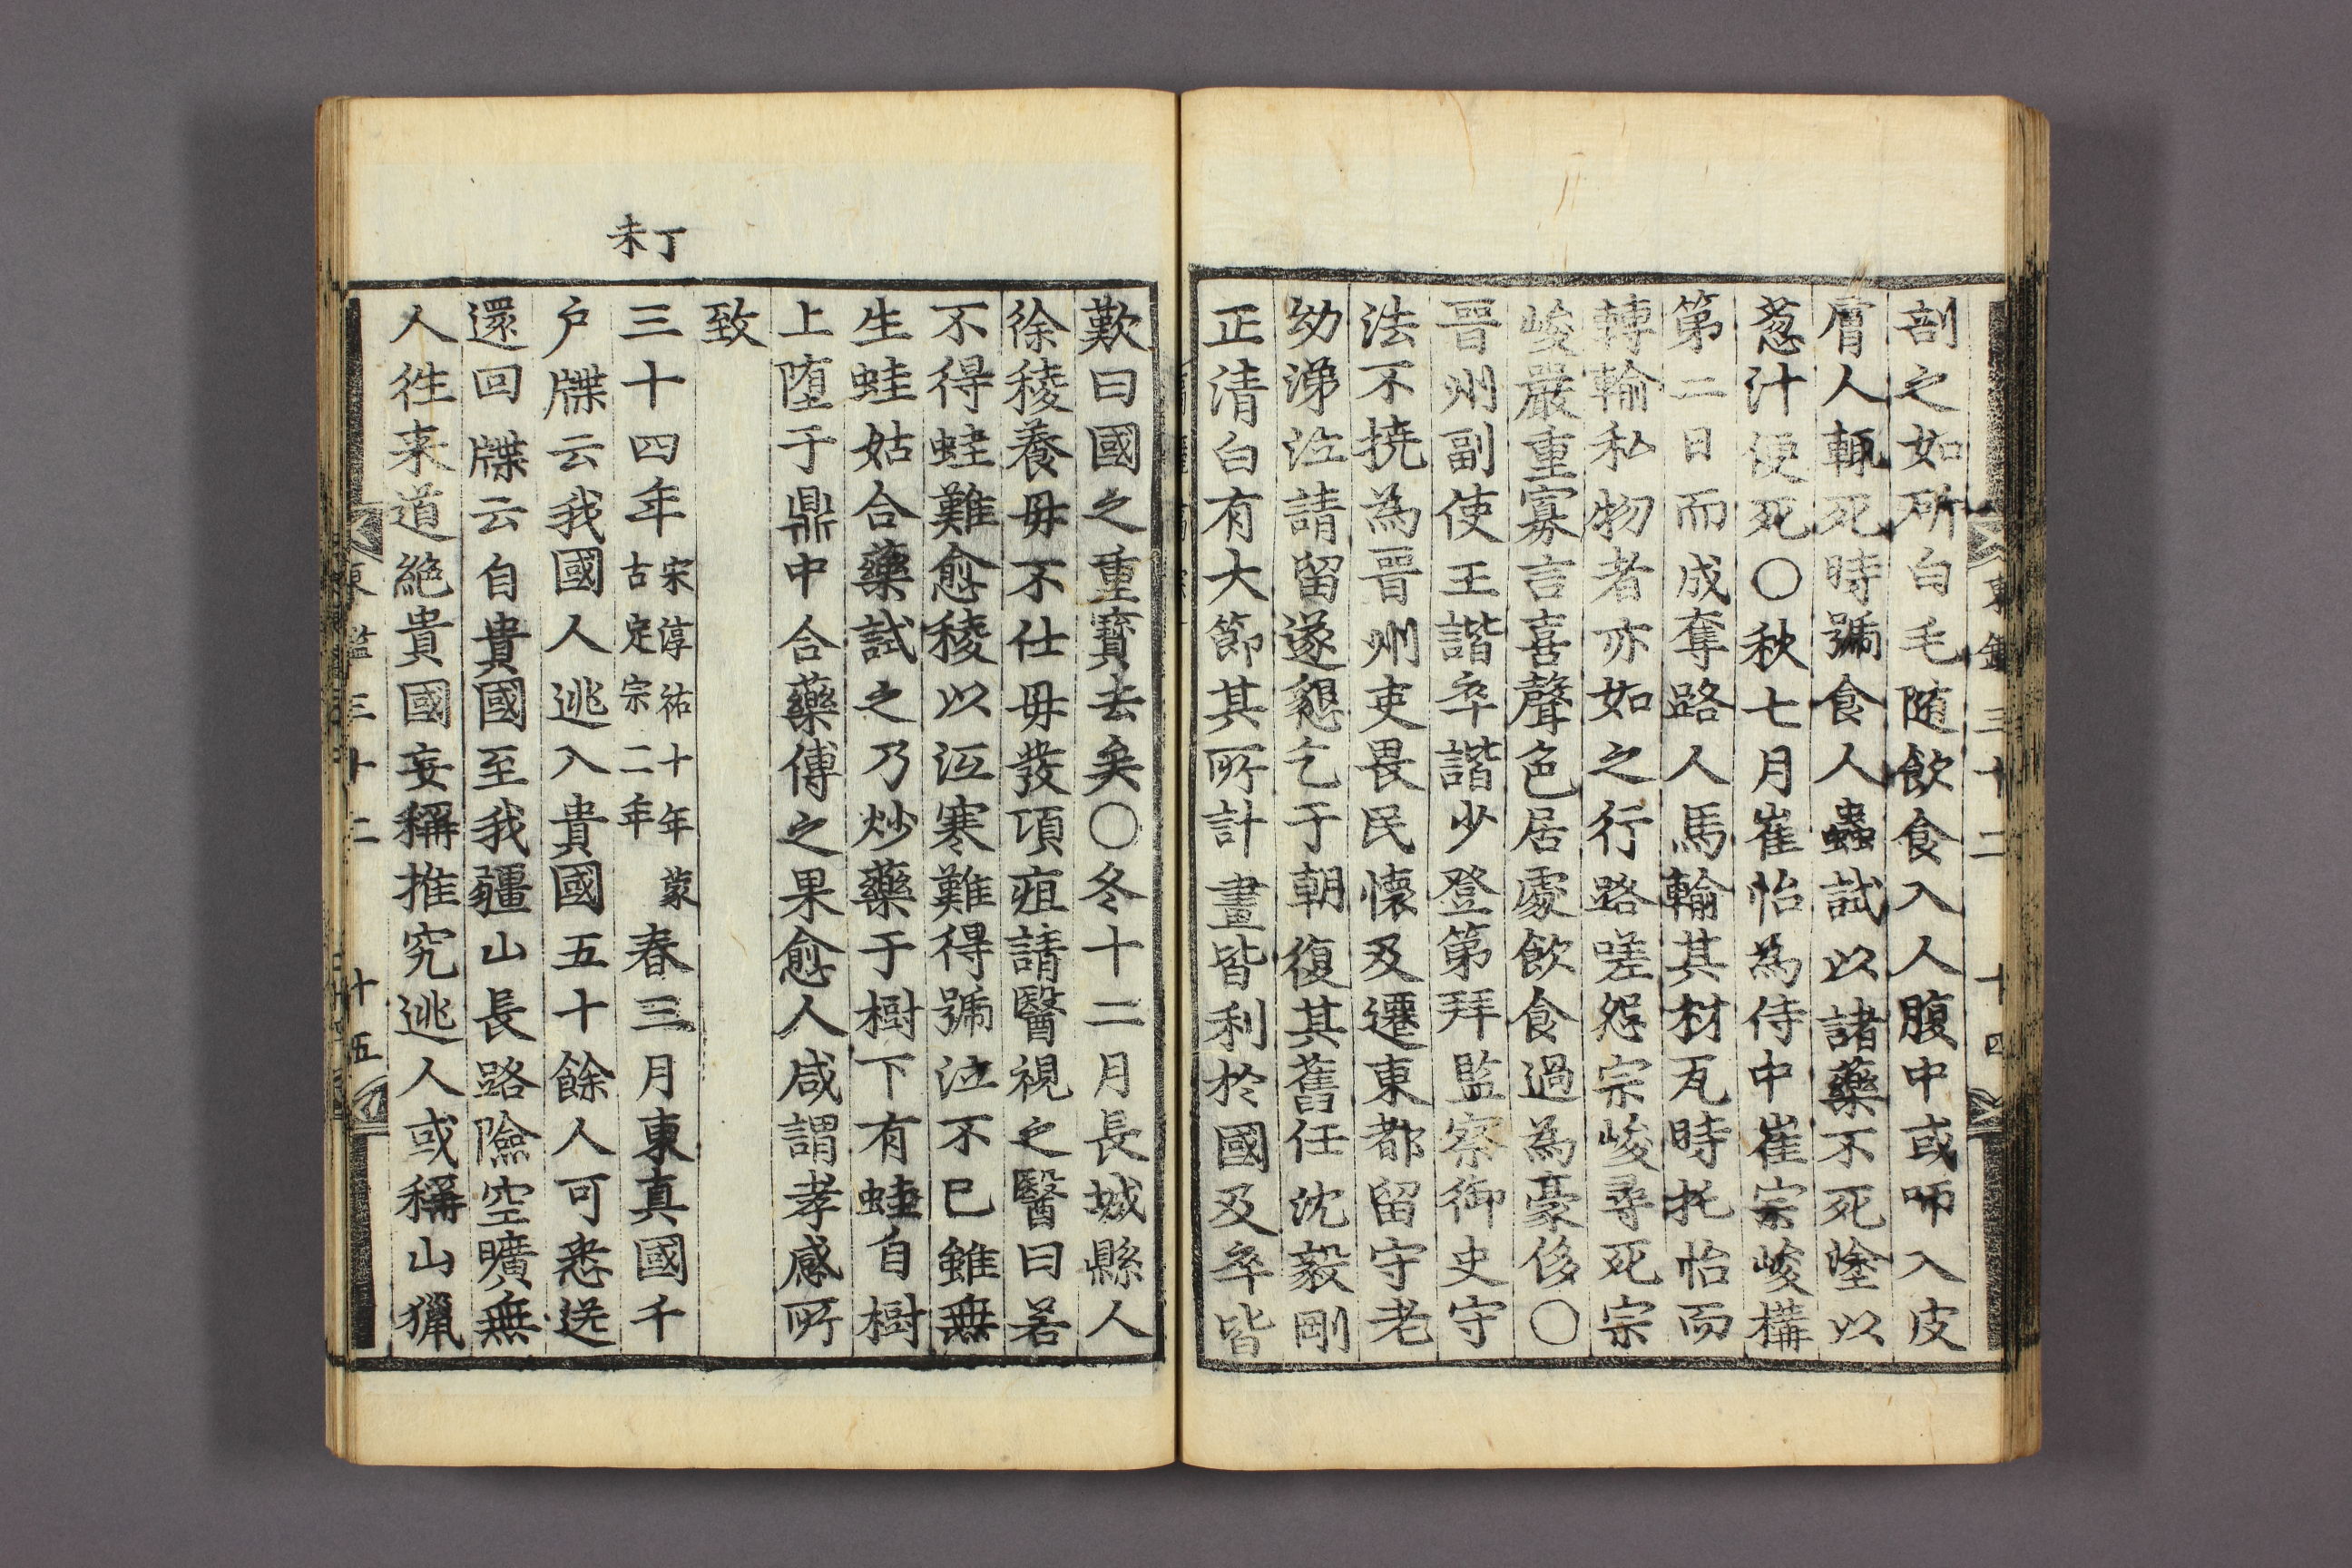 剖之如所白毛随飮食入人腹中或咂入皮
膚人輒死時號食人蟲試以諸藥不死塗以
葱汁便死〇秋七月崔怡為侍中崔宗峻構
第二日而成奪路人馬輸其材瓦時托怡而
轉輸私物者亦如之行路嗟怨宗峻尋死宗
峻嚴重寡言喜聲色居處飮食過為豪侈〇
晋州副使王諧卒諧少登第拜監察御史守
法不撓為晋州吏畏民懷及遷東都留守老
幼涕泣請留遂懇乞于朝復其舊任沈毅剛
正清白有大節其所計畫皆利於國及卒皆
歎曰國之重寶去矣〇冬十二月長城縣人
徐稜養毋不仕毋發項疽請醫視之醫曰若
不得蛙難愈稜以沍寒難得號泣不已雖無
生蛙姑合藥試之乃炒藥于樹下有蛙自樹
上堕于鼎中合藥傅之果愈人咸謂孝感所
致
丁未
三十四年宋淳祐十年蒙古定宗二年春三月東真國千
户牒云我國人逃入貴國五十餘人可悉送
還回牒云自貴國至我疆山長路險空曠無
人徃来道絶貴國妄稱推究逃人或稱山獵
東鑑三十二 十五